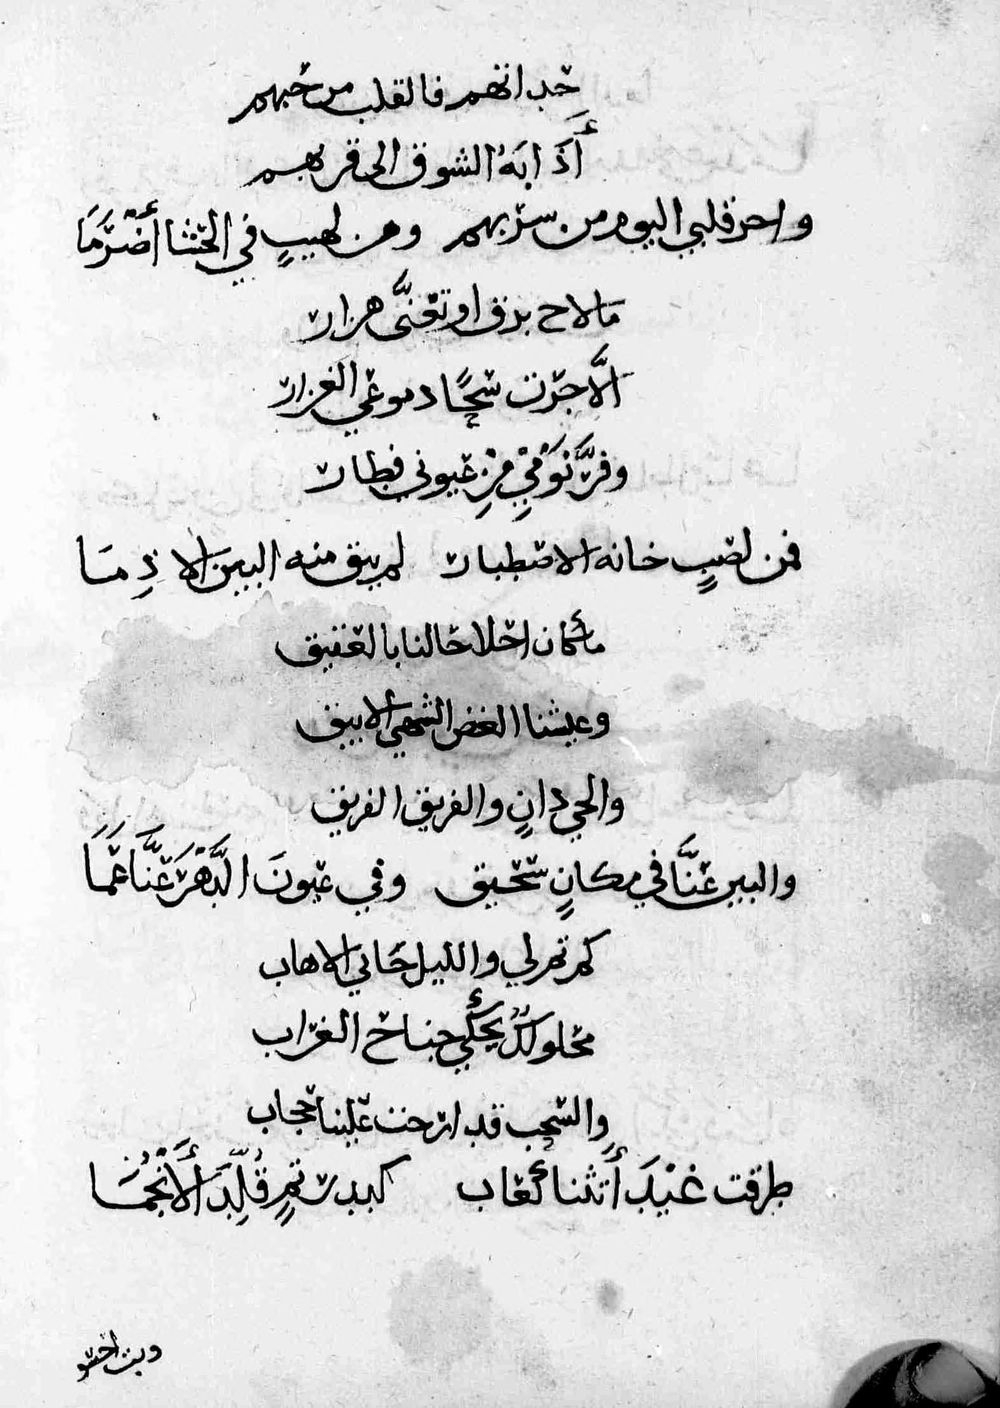 حداتهم فالقلب من حبهم
أَذَابَهُ الشوق الى قربهم
واحر قلبي اليوم من سربهم وهن لهيبٍ في الحشا أَضْرَمَا
ما لاح برق او تغنَّى هزار
الَّا جرت سُحًّا دموعي الغزار
وفرَّ نَوْمِي مِنْ عيوني فطار
فمن لصبٍ خانه الاصطبار لم يبق منه البين الا ذِمَا
ما كان احلا حالنا بالعقيق
وعيشنا الغض الشهي الانيق
والحي دانٍ والفريق الفريق
والبين عنَّا في مكانٍ سحيق وفي عيونَ الدَّهْرَ عنَّا عَمَا
كم تم لي والليل حاني الاهاب
محلولكٌ يحكي جناح الغراب
والسحب قد ارخت علينا حجاب
طرقت غيْدَ أَتثنا كعاب كبدر تمٍ قُلِّدَ الأَنْجُمَا
وبت احسو